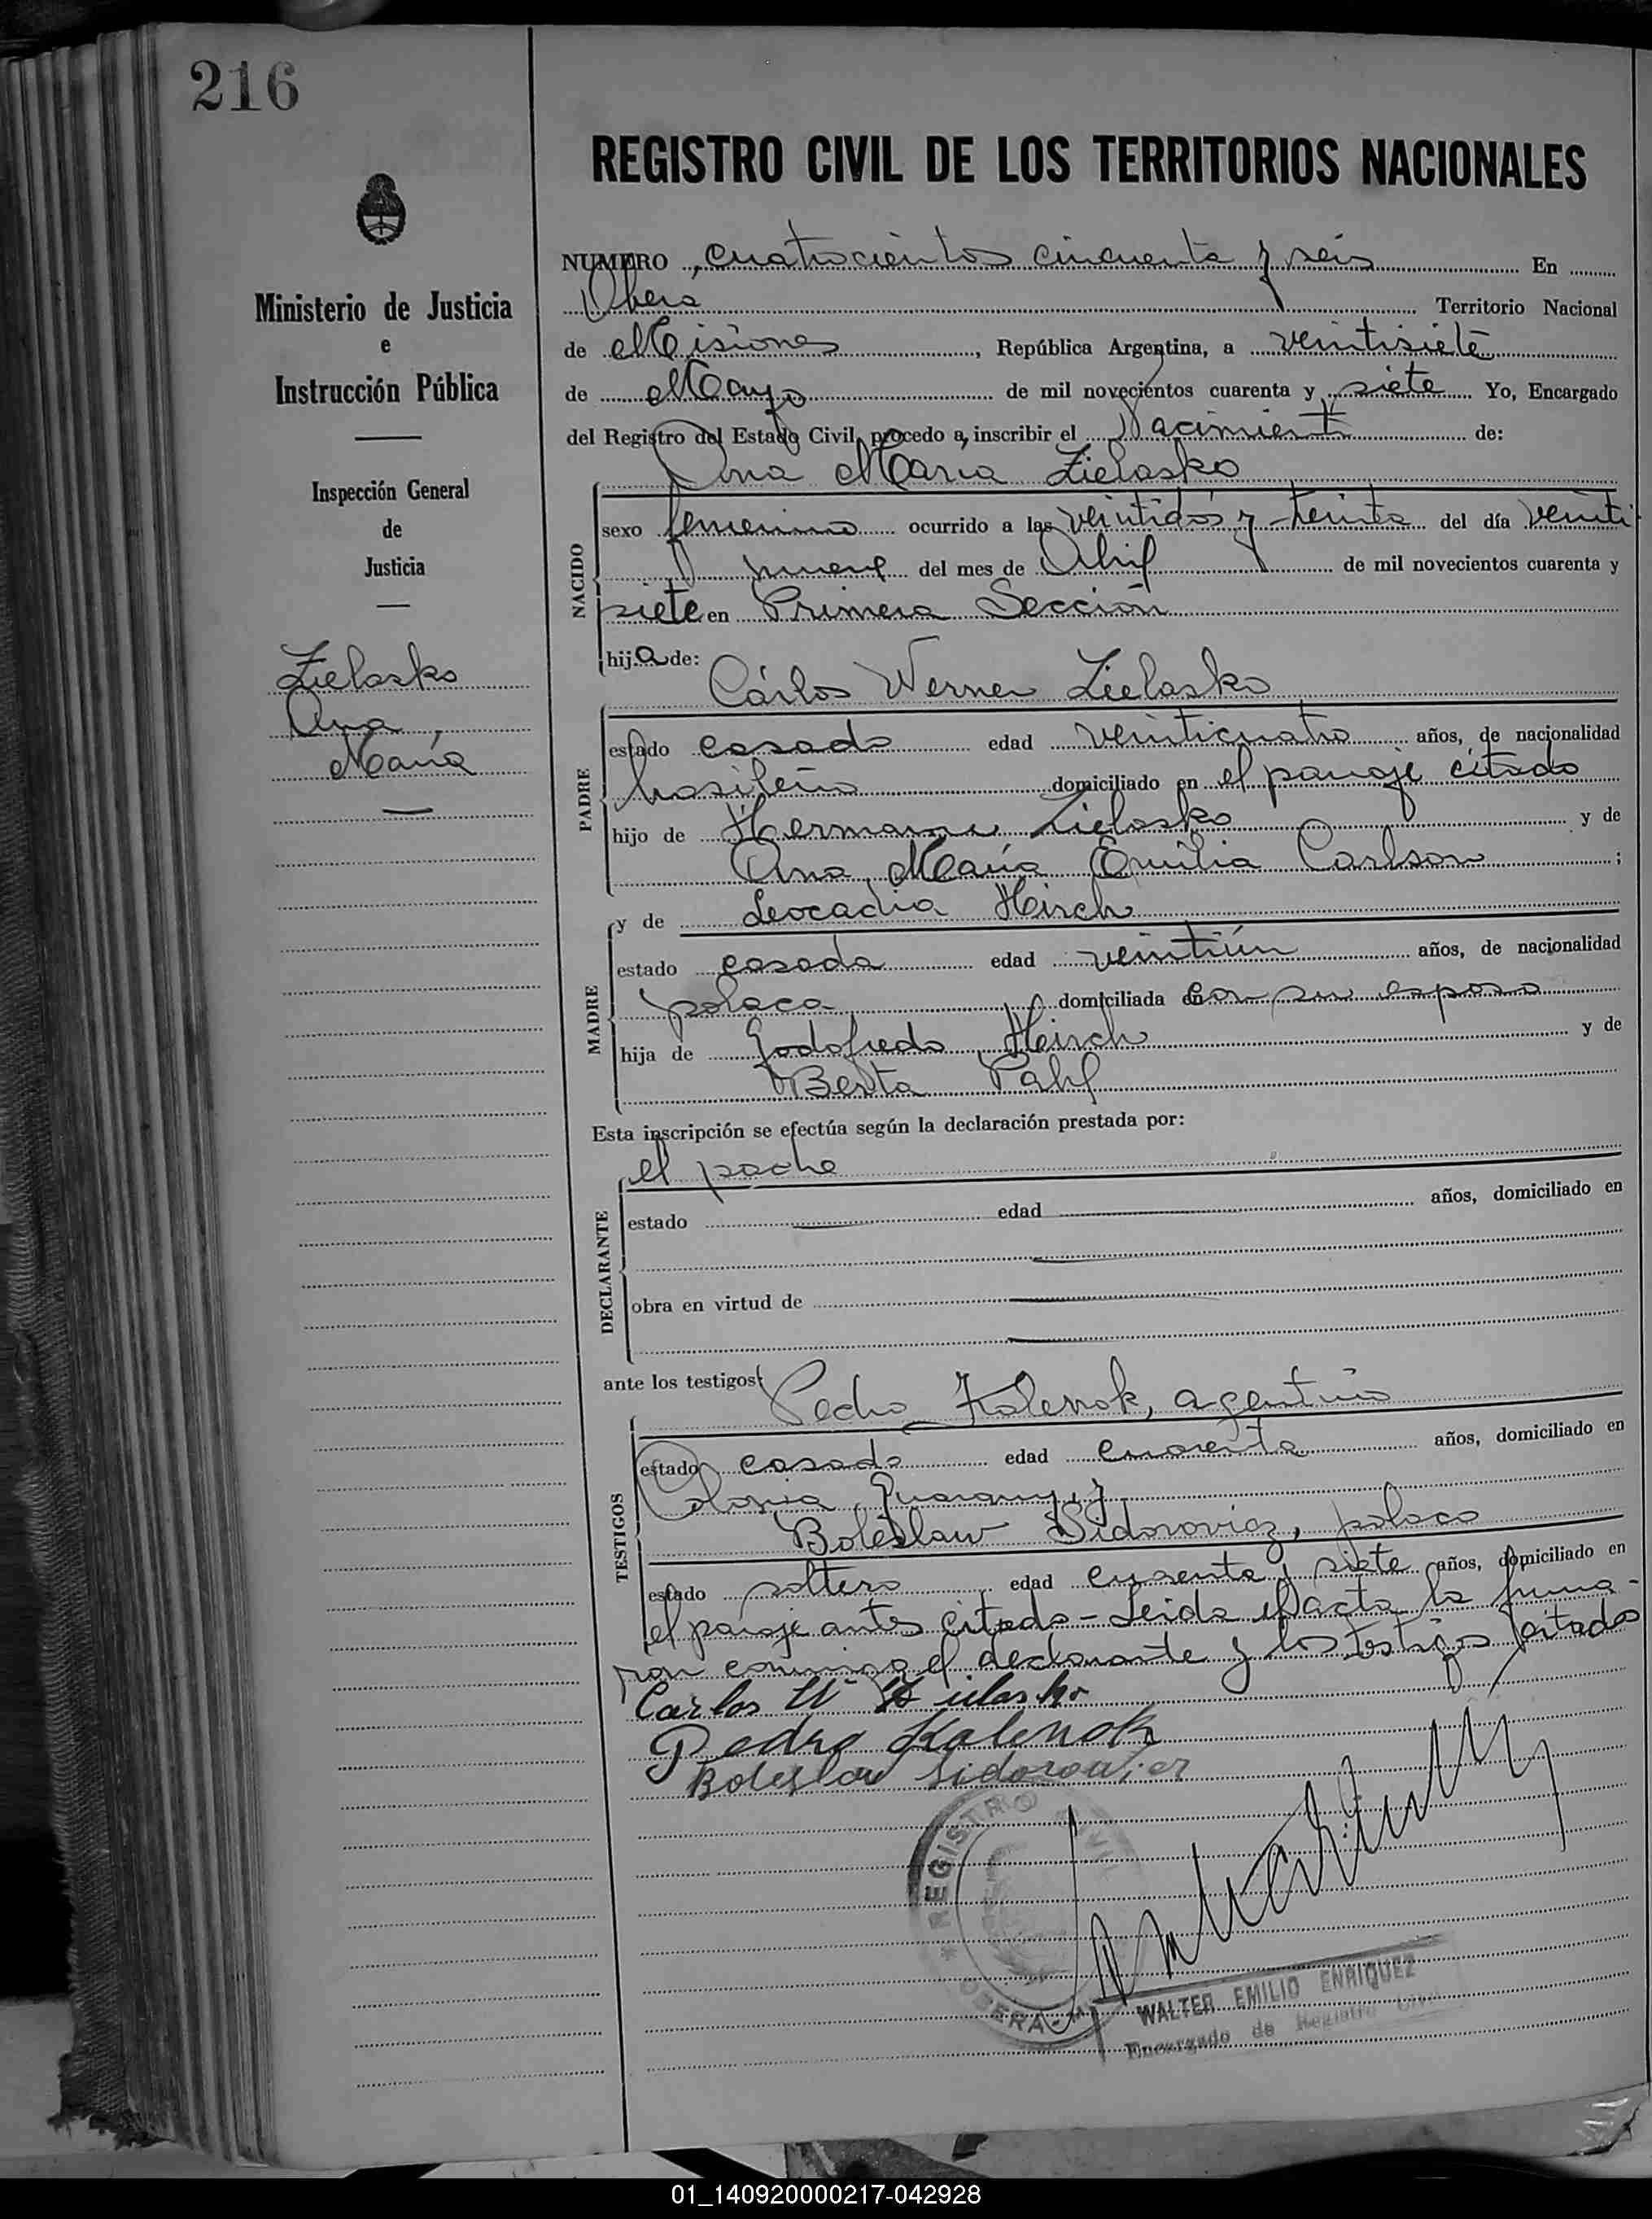 216
REGISTRO CIVIL DE LOS TERRITORIOS NACIONALES
Ministerio de Justicia
e
Instrucción Pública
Inspección General
de
Justicia
Zielasko
Ana
María
NUMERO cuatrocientos cincuenta y seis En
Oberá Territorio Nacional
de Misiones, República Argentina, a veintisiete
de Mayo de mil novecientos cuarenta y siete Yo, Encargado
del Registro del Estado Civil, procedo a inscribir el Nacimiento de:
Ana María Zielasko
NACIDO
sexo femenino ocurrido a las veintidós y treinta del día veinti
nueve del mes de Abril de mil novecientos cuarenta y
siete en Primera Sección
hija de:
Cárlos Werner Zielasko
PADRE
estado casado edad veinticuatro años, de nacionalidad
brasileño domiciliado en el paraje citado
hijo de Hermann Zielasko y de
Ana María Emilia Carlson ;
y de Leocadia Hirsch
MADRE
estado casada edad veintiún años, de nacionalidad
polaca domiciliada en con su esposo
hija de Godofredo Hirsch y de
Berta Pahl
Esta inscripción se efectúa según la declaración prestada por:
el padre
DECLARANTE
estado edad años, domiciliado en
obra en virtud de
ante los testigos:
Pedro Kolenok, argentino
TESTIGOS
estado casado edad cuarenta años, domiciliado en
Colonia Guarany y
Boleslaw Sidorovicz, polaco
estado soltero edad cuarenta y siete años, domiciliado en
el paraje antes citado - Leida el acta la firma-
ron conmigo el declarante y los testigos citados
Carlos W Zielasko
Pedro Kalenok
Boleslaw Sidorowicz
REGISTRO CIVIL
OBERA
WALTER EMILIO ENRIQUEZ
Encargado de Registro Civil
01_140920000217-042928